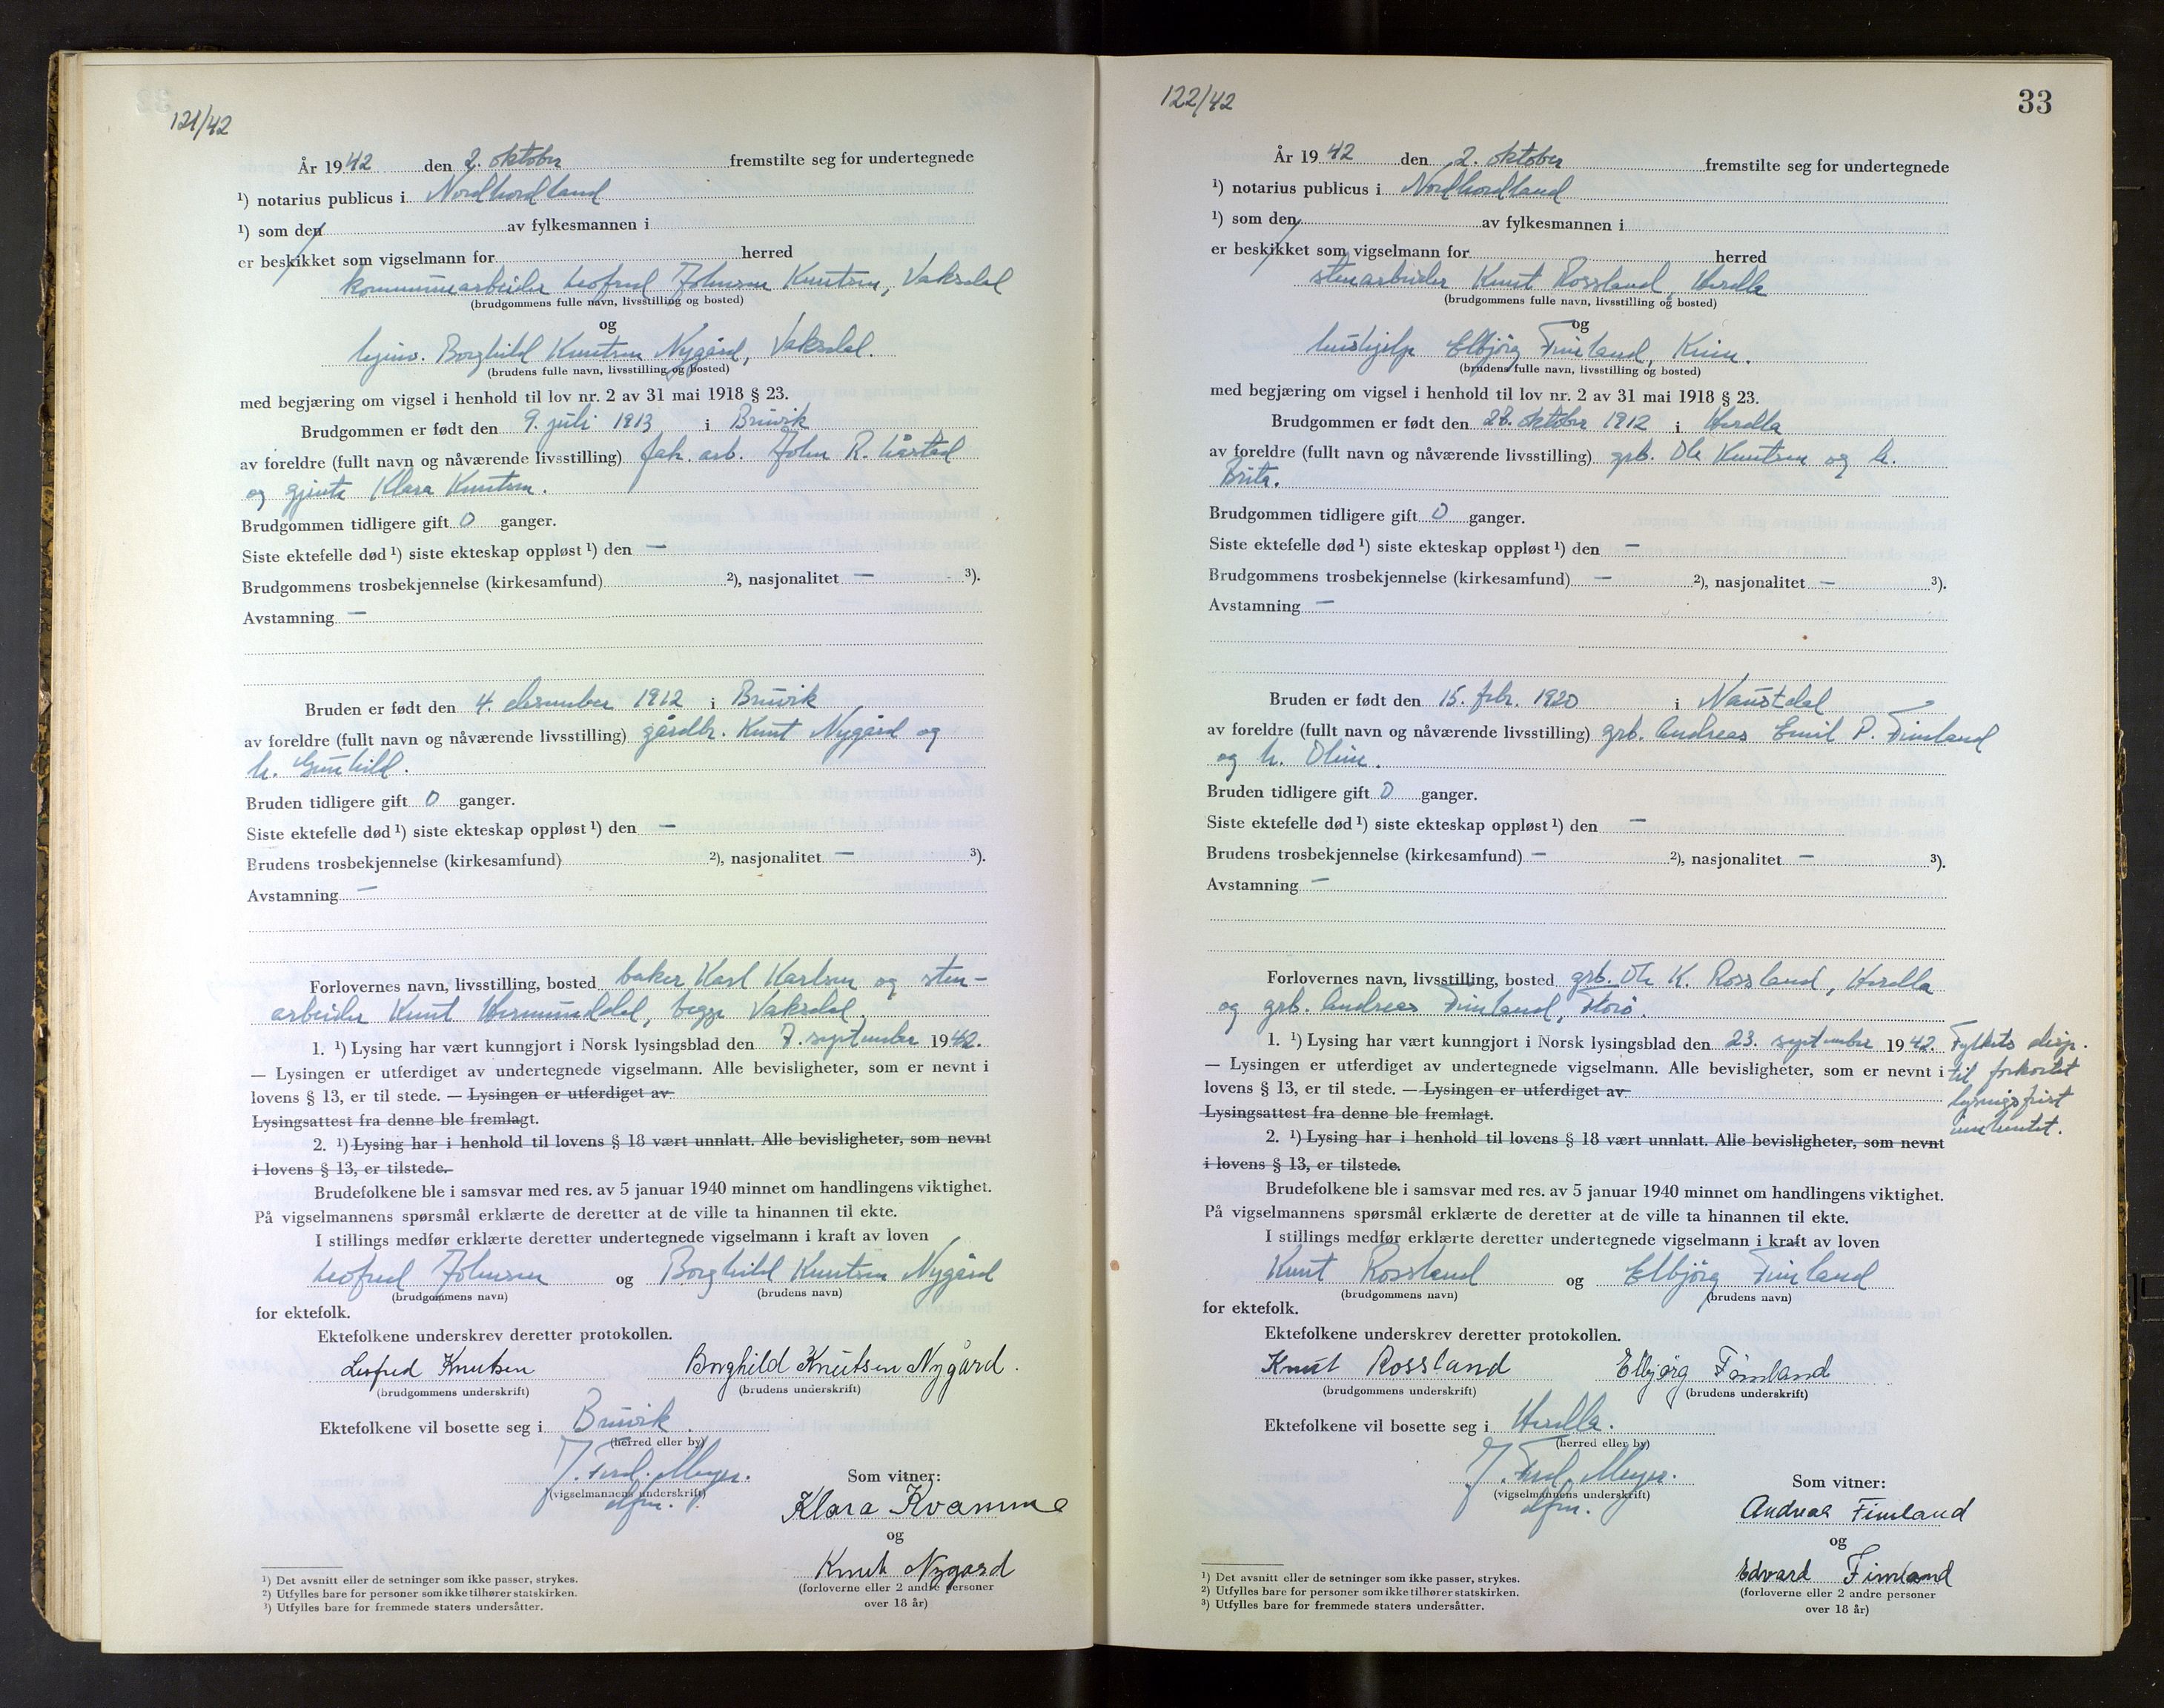 121/42
År 1942 den 2. oktober fremstilte seg for undertegnede
¹) notarius publicus i Nordhordland
¹) som den av fylkesmannen i
er beskikket som vigselmann for herred
kommunearbeider Leofred Johnsen Knutsen, Vaksdal
(brudgommens fulle navn, livsstilling og bosted)
og
hjemv. Borghild Knutsen Nygård, Vaksdal.
(brudens fulle navn, livsstilling og bosted)
med begjæring om vigsel i henhold til lov nr. 2 av 31 mai 1918 § 23.
Brudgommen er født den 9. juli 1913 i Bruvik
av foreldre (fullt navn og nåværende livsstilling) fab. arb. John R.
og gjente Klara Knutsen.
Brudgommen tidligere gift 0 ganger.
Siste ektefelle død ¹) siste ekteskap oppløst ¹) den —
Brudgommens trosbekjennelse (kirkesamfund) ²), nasjonalitet — ³).
Avstamning —
Bruden er født den 4. desember 1912 i Bruvik
av foreldre (fullt navn og nåværende livsstilling) gårdbr. Knut Nygård og
h. Gunhild.
Bruden tidligere gift 0 ganger.
Siste ektefelle død ¹) siste ekteskap oppløst ¹) den —
Brudens trosbekjennelse (kirkesamfund) ²), nasjonalitet — ³).
Avstamning —
Forlovernes navn, livsstilling, bosted baker Karl Karlsen og sten-
arbeider Knut Hermundsdal, begge Vaksdal.
1. ¹) Lysing har vært kunngjort i Norsk lysingsblad den 7. september 1942.
— Lysingen er utferdiget av undertegnede vigselmann. Alle bevisligheter, som er nevnt i
lovens § 13, er til stede. — Lysingen er utferdiget av
Lysingsattest fra denne ble fremlagt.
2. ¹) Lysing har i henhold til lovens § 18 vært unnlatt. Alle bevisligheter, som nevnt
i lovens § 13, er tilstede.
Brudefolkene ble i samsvar med res. av 5 januar 1940 minnet om handlingens viktighet.
På vigselmannens spørsmål erklærte de deretter at de ville ta hinannen til ekte.
I stillings medfør erklærte deretter undertegnede vigselmann i kraft av loven
Leofred Johnsen og Borghild Knutsen Nygård
(brudgommens navn) (brudens navn)
for ektefolk.
Ektefolkene underskrev deretter protokollen.
Leofred Knutsen Borghild Knutsen Nygård.
(brudgommens underskrift) (brudens underskrift)
Ektefolkene vil bosette seg i Bruvik.
(herred eller by)
J. Ferd. Meyer.
(vigselmannens underskrift)
dfm.
Som vitner:
Klara Kvamme
og
Knut Nygard
(forloverne eller 2 andre personer
over 18 år)
¹) Det avsnitt eller de setninger som ikke passer, strykes.
²) Utfylles bare for personer som ikke tilhører statskirken.
³) Utfylles bare for fremmede staters undersåtter.
122/42
33
År 1942 den 2. oktober fremstilte seg for undertegnede
¹) notarius publicus i Nordhordland
¹) som den av fylkesmannen i
er beskikket som vigselmann for herred
stenarbeider Knut Rossland, Herdla
(brudgommens fulle navn, livsstilling og bosted)
og
hushjelp Elbjörg Fimland, Kinn.
(brudens fulle navn, livsstilling og bosted)
med begjæring om vigsel i henhold til lov nr. 2 av 31 mai 1918 § 23.
Brudgommen er født den 28. oktober 1912 i Herdla
av foreldre (fullt navn og nåværende livsstilling) grb. Ole Knutsen og h.
Brita.
Brudgommen tidligere gift 0 ganger.
Siste ektefelle død ¹) siste ekteskap oppløst ¹) den —
Brudgommens trosbekjennelse (kirkesamfund) — ²), nasjonalitet — ³).
Avstamning —
Bruden er født den 15. febr. 1920 i Naustdal
av foreldre (fullt navn og nåværende livsstilling) grb. Andreas Emil P. Fimland
og h. Oline.
Bruden tidligere gift 0 ganger.
Siste ektefelle død ¹) siste ekteskap oppløst ¹) den —
Brudens trosbekjennelse (kirkesamfund) — ²), nasjonalitet — ³).
Avstamning —
Forlovernes navn, livsstilling, bosted grb. Ole K. Rossland, Herdla
og grb. Andreas Fimland, Florø.
1. ¹) Lysing har vært kunngjort i Norsk lysingsblad den 23. september 1942.
— Lysingen er utferdiget av undertegnede vigselmann. Alle bevisligheter, som er nevnt i
lovens § 13, er til stede. — Lysingen er utferdiget av
Lysingsattest fra denne ble fremlagt.
Fylkets disp.
til forkortet
lysingsfrist
innhentet.
2. ¹) Lysing har i henhold til lovens § 18 vært unnlatt. Alle bevisligheter, som nevnt
i lovens § 13, er tilstede.
Brudefolkene ble i samsvar med res. av 5 januar 1940 minnet om handlingens viktighet.
På vigselmannens spørsmål erklærte de deretter at de ville ta hinannen til ekte.
I stillings medfør erklærte deretter undertegnede vigselmann i kraft av loven
Knut Rossland og Elbjörg Fimland
(brudgommens navn) (brudens navn)
for ektefolk.
Ektefolkene underskrev deretter protokollen.
Knut Rossland Elbjørg Fimland
(brudgommens underskrift) (brudens underskrift)
Ektefolkene vil bosette seg i Herdla.
(herred eller by)
J. Ferd. Meyer.
(vigselmannens underskrift)
dfm.
Som vitner:
Andreas Fimland
og
Edvard Fimland
(forloverne eller 2 andre personer
over 18 år)
¹) Det avsnitt eller de setninger som ikke passer, strykes.
²) Utfylles bare for personer som ikke tilhører statskirken.
³) Utfylles bare for fremmede staters undersåtter.